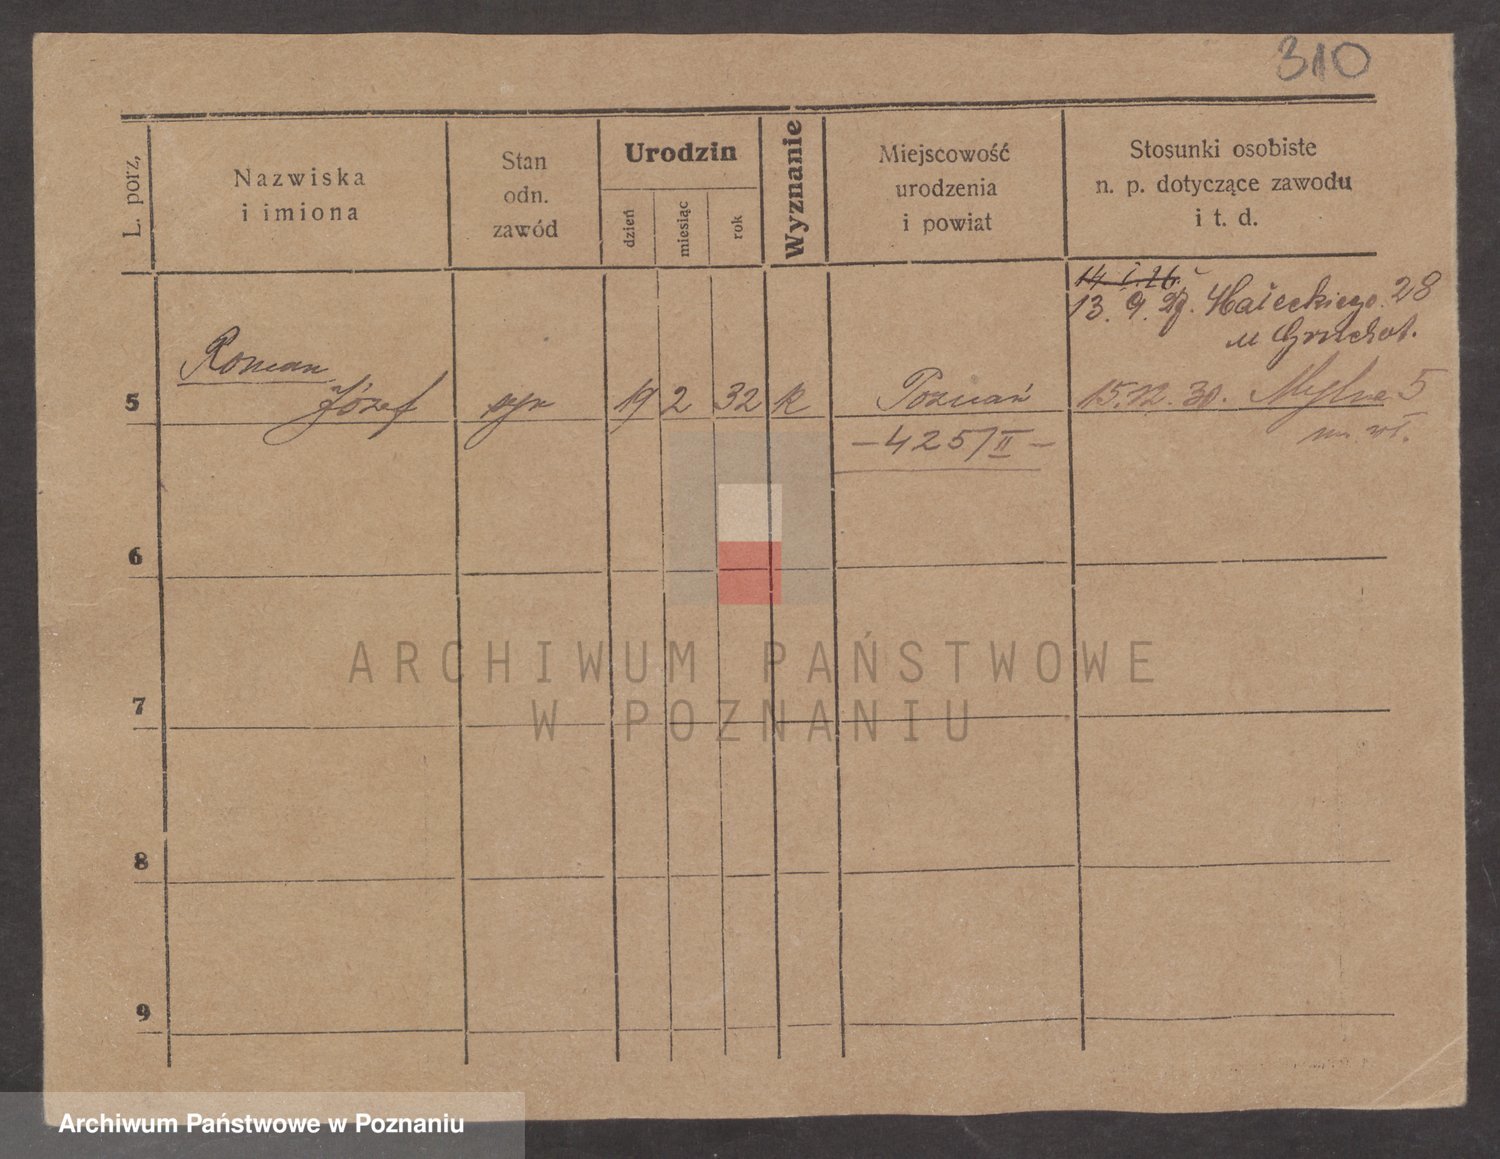 310
L. porz,
Nazwiska
i imiona
Stan
odn.
zawód
Urodzin
dzień
miesiąc
rok
Wyznanie
Miejscowość
urodzenia
i powiat
Stosunki osobiste
n. p. dotyczące zawodu
i t. d.
14. I. 26.
13. 9. 27. Małeckiego 28
u Gruchot.
Roman
5 Józef syn 19 2 32 k Poznań 15. 12. 30. Mylna 5
—425/II—
6
ARCHIWUM PAŃSTWOWE
W POZNANIU
7
8
9
Archiwum Państwowe w Poznaniu